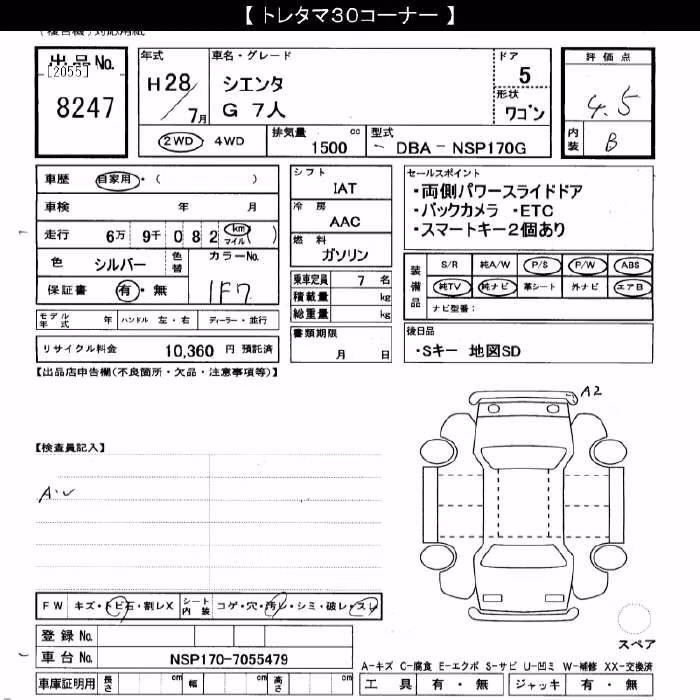 【 トレタマ30コーナー 】
(複合機)対応用紙
出品No.
[2055]
8247
年式
H28/7月
車名・グレード
シエンタ
G 7人
ドア
5
形状
ワゴン
評価点
4.5
内装
B
2WD 4WD
排気量 1500 cc
型式 - DBA - NSP170G
車歴 自家用・( )
車検 年 月
走行 6万 9千 0 8 2 km マイル ( )
色 シルバー 色替 カラーNo.
保証書 有・無 1F7
シフト
IAT
冷房
AAC
燃料
ガソリン
乗車定員 7 名
積載量 kg
総重量 kg
書類期限
月 日
セールスポイント
・両側パワースライドドア
・バックカメラ ・ETC
・スマートキー2個あり
装備品
S/R 純A/W P/S P/W ABS
純TV 純ナビ 革シート 外ナビ エアB
ナビ型番:
後日品
・Sキー 地図SD
モデル年式 年 ハンドル 左・右 ディーラー・並行
リサイクル料金 10,360 円 預託済
【出品店申告欄(不良箇所・欠品・注意事項等)】
A2
【検査員記入】
FW キズ・トビ石・割レX シート内装 コゲ・穴・汚レ・シミ・破レ・スレ
登録No.
車台No. NSP170-7055479
車庫証明用 長さ cm 幅 cm 高さ cm
スペア
A-キズ C-腐食 E-エクボ S-サビ U-凹ミ W-補修 XX-交換済
工具 有・無 ジャッキ 有・無